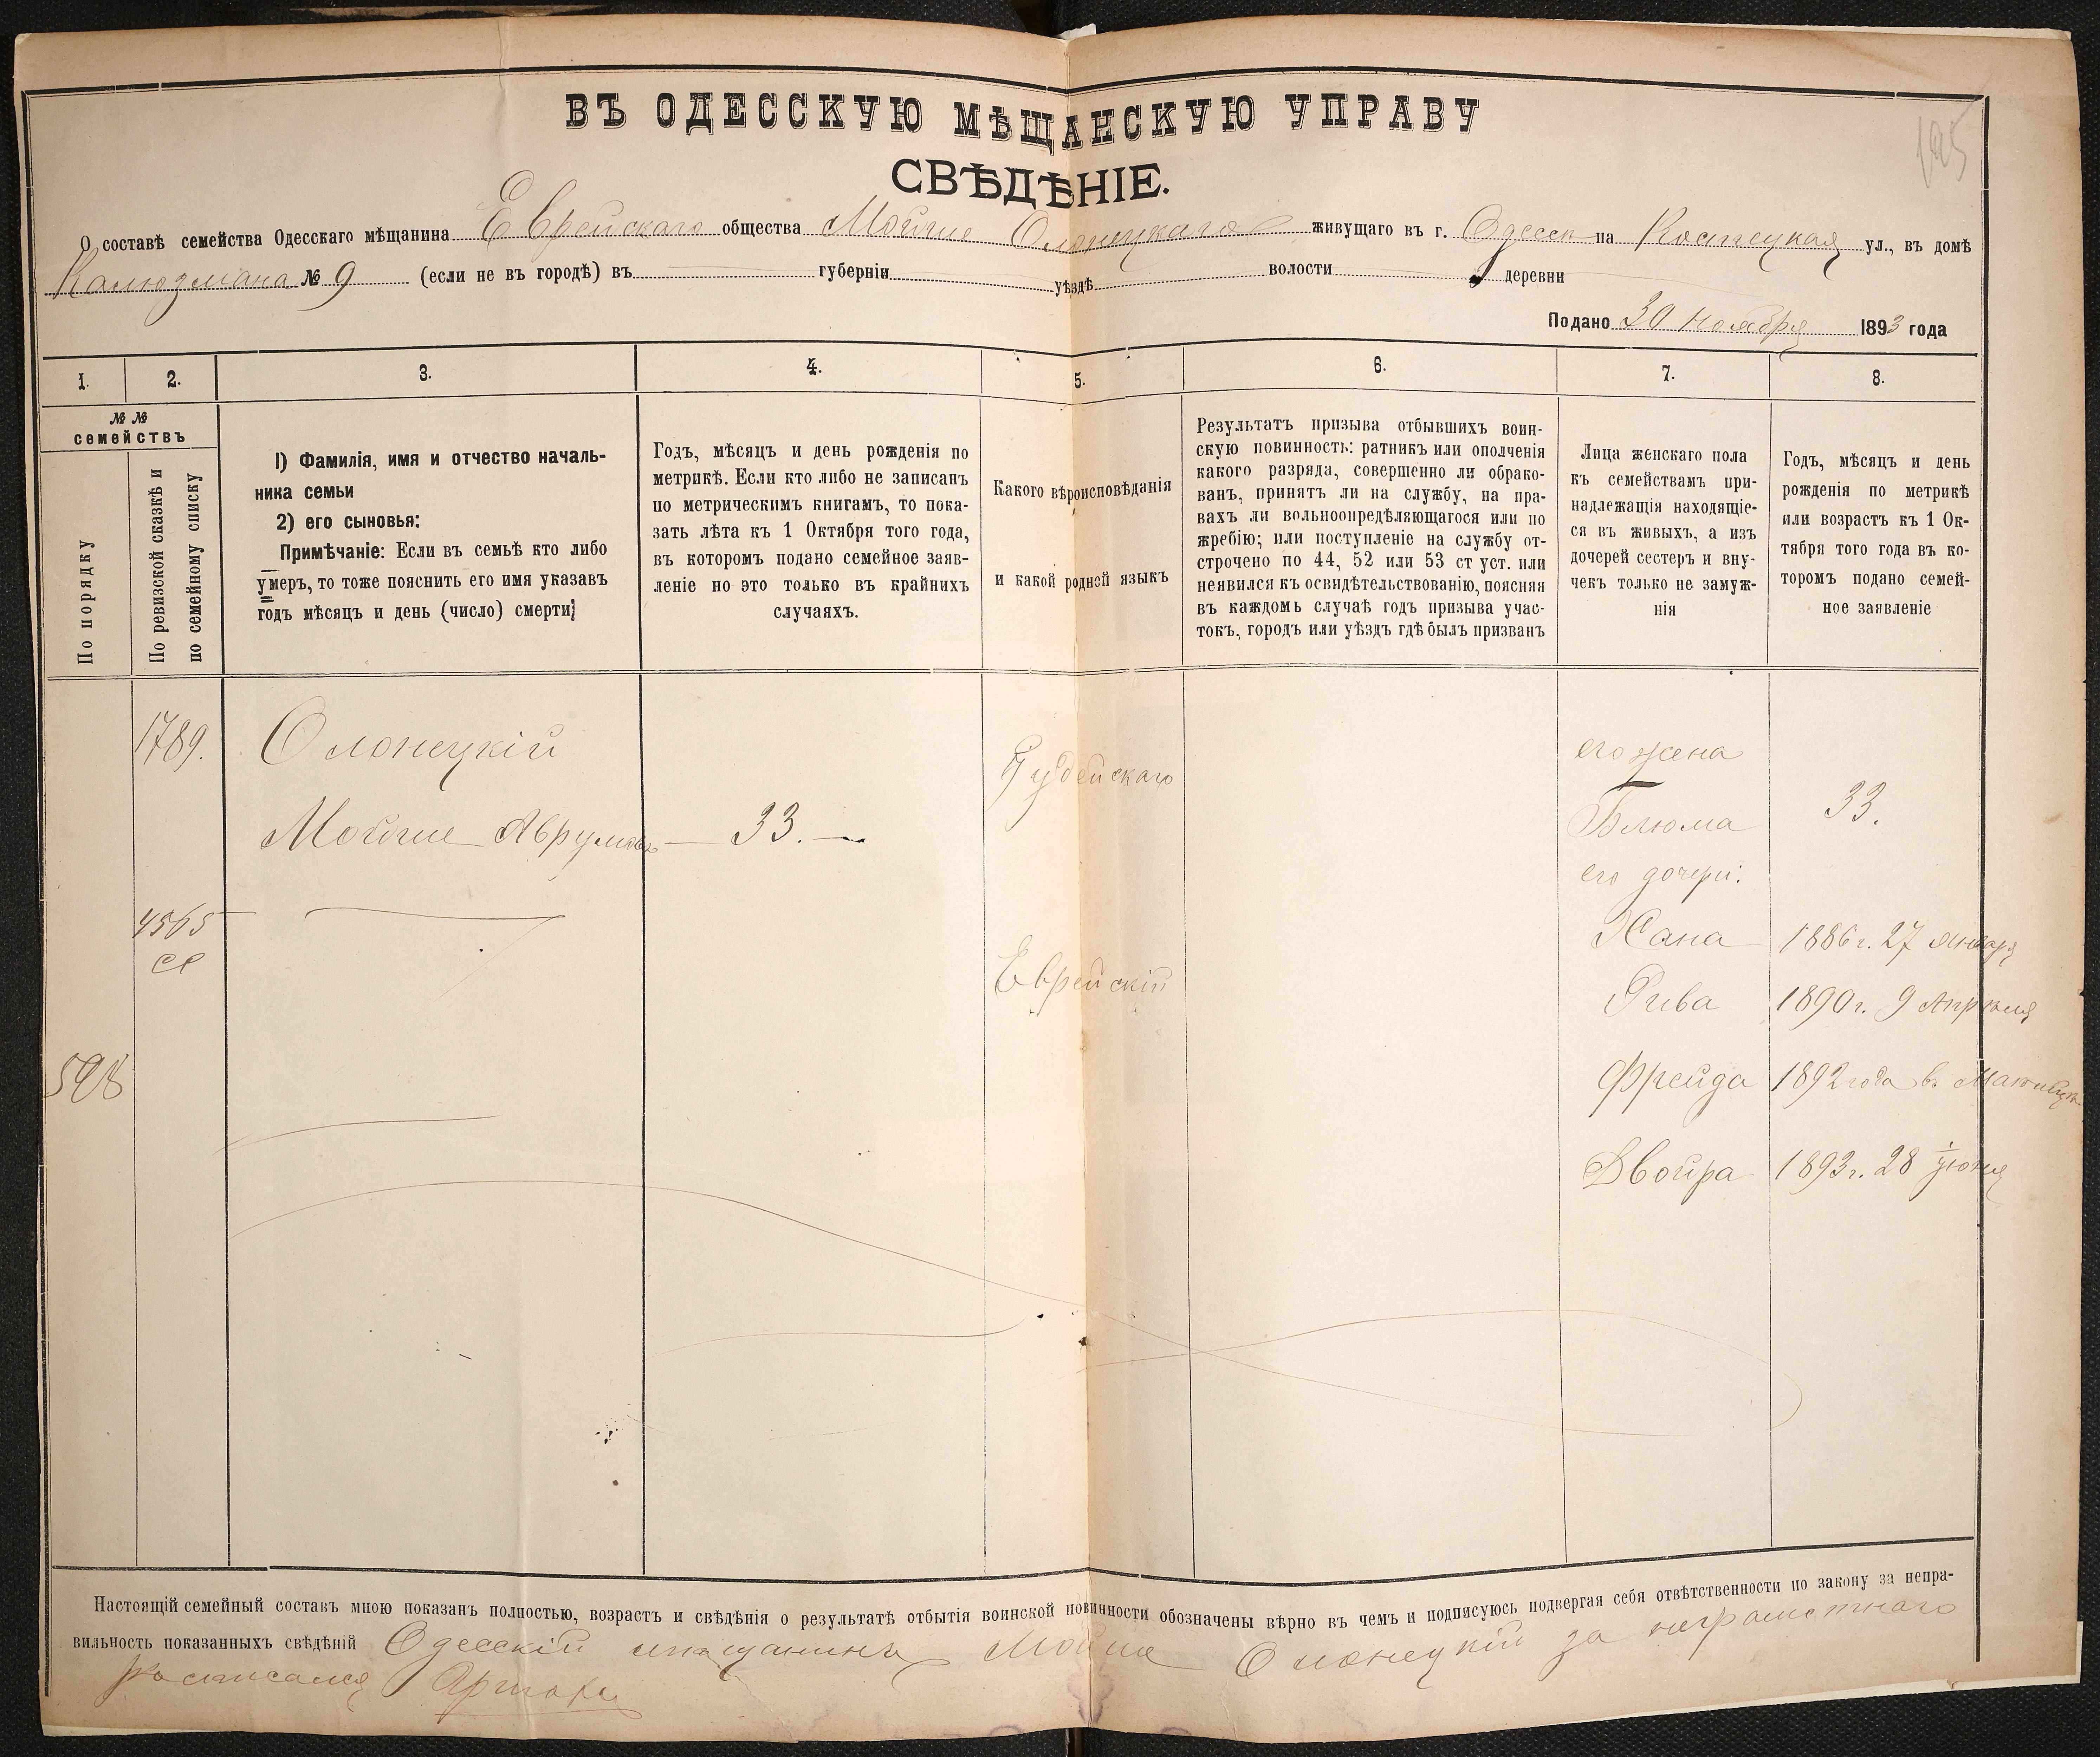 195
ВЪ ОДЕССКУЮ МѢЩАНСКУЮ УПРАВУ
СВѢДѢНІЕ.
О составѣ семейства Одесскаго мѣщанина Еврейскаго общества Мойше Олонецкаго живущаго въ г. Одессѣ на Костецкая ул., въ домѣ
№ 9 (если не въ городѣ) въ губерніи уѣздѣ волости деревни
Подано 30 Ноября 1893 года
1. 2. 3. 4. 5. 6. 7. 8.
№ №
семействъ
По порядку
По ревизской сказкѣ и
по семейному списку
1) Фамилія, имя и отчество началь-
ника семьи
2) его сыновья:
Примѣчаніе: Если въ семьѣ кто либо
умеръ, то тоже пояснить его имя указавъ
годъ мѣсяцъ и день (число) смерти;
Годъ, мѣсяцъ и день рожденія по
метрикѣ. Если кто либо не записанъ
по метрическимъ книгамъ, то пока-
зать лѣта къ 1 Октября того года,
въ котором подано семейное заяв-
леніе но это только въ крайнихъ
случаяхъ.
Какого вѣроисповѣданія
и какой родной языкъ
Результатъ призыва отбывшихъ воин-
скую повинность: ратникъ или ополченія
какого разряда, совершенно ли обрако-
ванъ, принятъ ли на службу, на пра-
вахъ ли вольноопредѣляющагося или по
жребію; или поступленіе на службу от-
строчено по 44, 52 или 53 ст уст. или
неявился къ освидѣтельствованію, поясняя
въ каждомъ случаѣ годъ призыва учас-
токъ, городъ или уѣздъ гдѣ былъ призванъ
Лица женскаго пола
къ семействамъ при-
надлежащія находящіе-
ся въ живыхъ, а изъ
дочерей сестеръ и вну-
чекъ только не замуж-
нія
Годъ, мѣсяцъ и день
рожденія по метрикѣ
или возрастъ къ 1 Ок-
тября того года въ ко-
торомъ подано семей-
ное заявленіе
1789.
Олонецкій
Іудейскаго
его жена
Мойше Аврумовъ — 33. —
Блюма 33.
его дочери:
4565
Хана 1886 г. 27 Января
Еврейскій
Рива 1890 г. 9 Апрѣля
598
Фрейда 1892 года въ
Двойра 1893 г. 28 Іюня
Настоящій семейный составъ мною показанъ полностью, возрастъ и свѣдѣнія о результатѣ отбытія воинской повинности обозначены вѣрно въ чемъ и подписуюсь подвергая себя отвѣтственности по закону за непра-
вильность показанныхъ свѣдѣній Одесскій мѣщанинъ Мойше Олонецкій за неграмотнаго
росписался